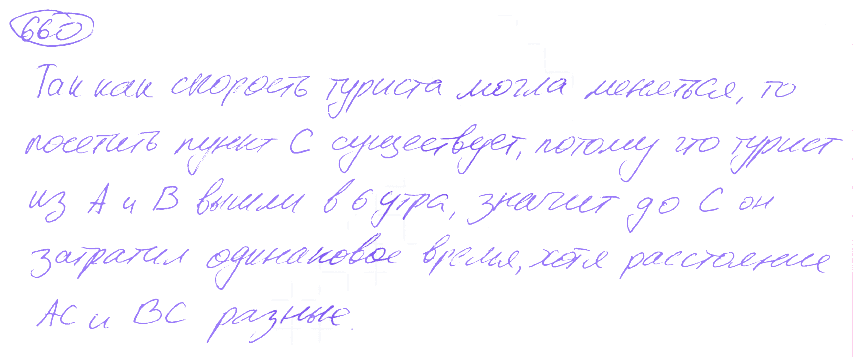 660
Так как скорость туриста могла меняться, то
посетить пункт С существует, потому что турист
из А и В вышли в 6 утра, значит до С он
затратил одинаковое время, хотя расстояние
АС и ВС разные.